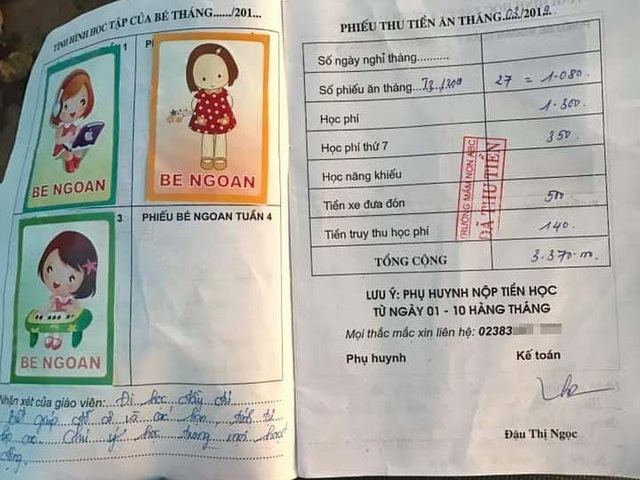 TÌNH HÌNH HỌC TẬP CỦA BÉ THÁNG....../201...
1
BÉ NGOAN
BÉ NGOAN
3
BÉ NGOAN
PHIẾU BÉ NGOAN TUẦN 4
Nhận xét của giáo viên: Đi học đầy đủ
Biết giúp đỡ cô và các bạn,
Chú ý học trong mọi hoạt
động.
PHIẾU THU TIỀN ĂN THÁNG 03/2019
Số ngày nghỉ tháng..........
Số phiếu ăn tháng... 27 = 1.080.
Học phí 1.300.
Học phí thứ 7 350.
Học năng khiếu
Tiền xe đưa đón 500.
Tiền truy thu học phí 140.
TỔNG CỘNG 3.370.m.
TRƯỜNG MẦM NON ABC
ĐÃ THU TIỀN
LƯU Ý: PHỤ HUYNH NỘP TIỀN HỌC
TỪ NGÀY 01 - 10 HÀNG THÁNG
Mọi thắc mắc xin liên hệ: 02383
Phụ huynh Kế toán
Đậu Thị Ngọc